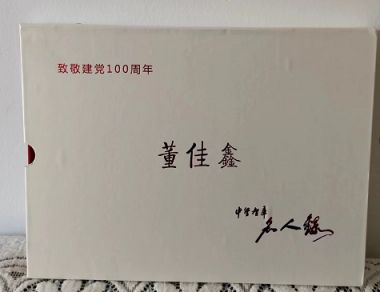 致敬建党100周年
董佳鑫
中字智库
名人录